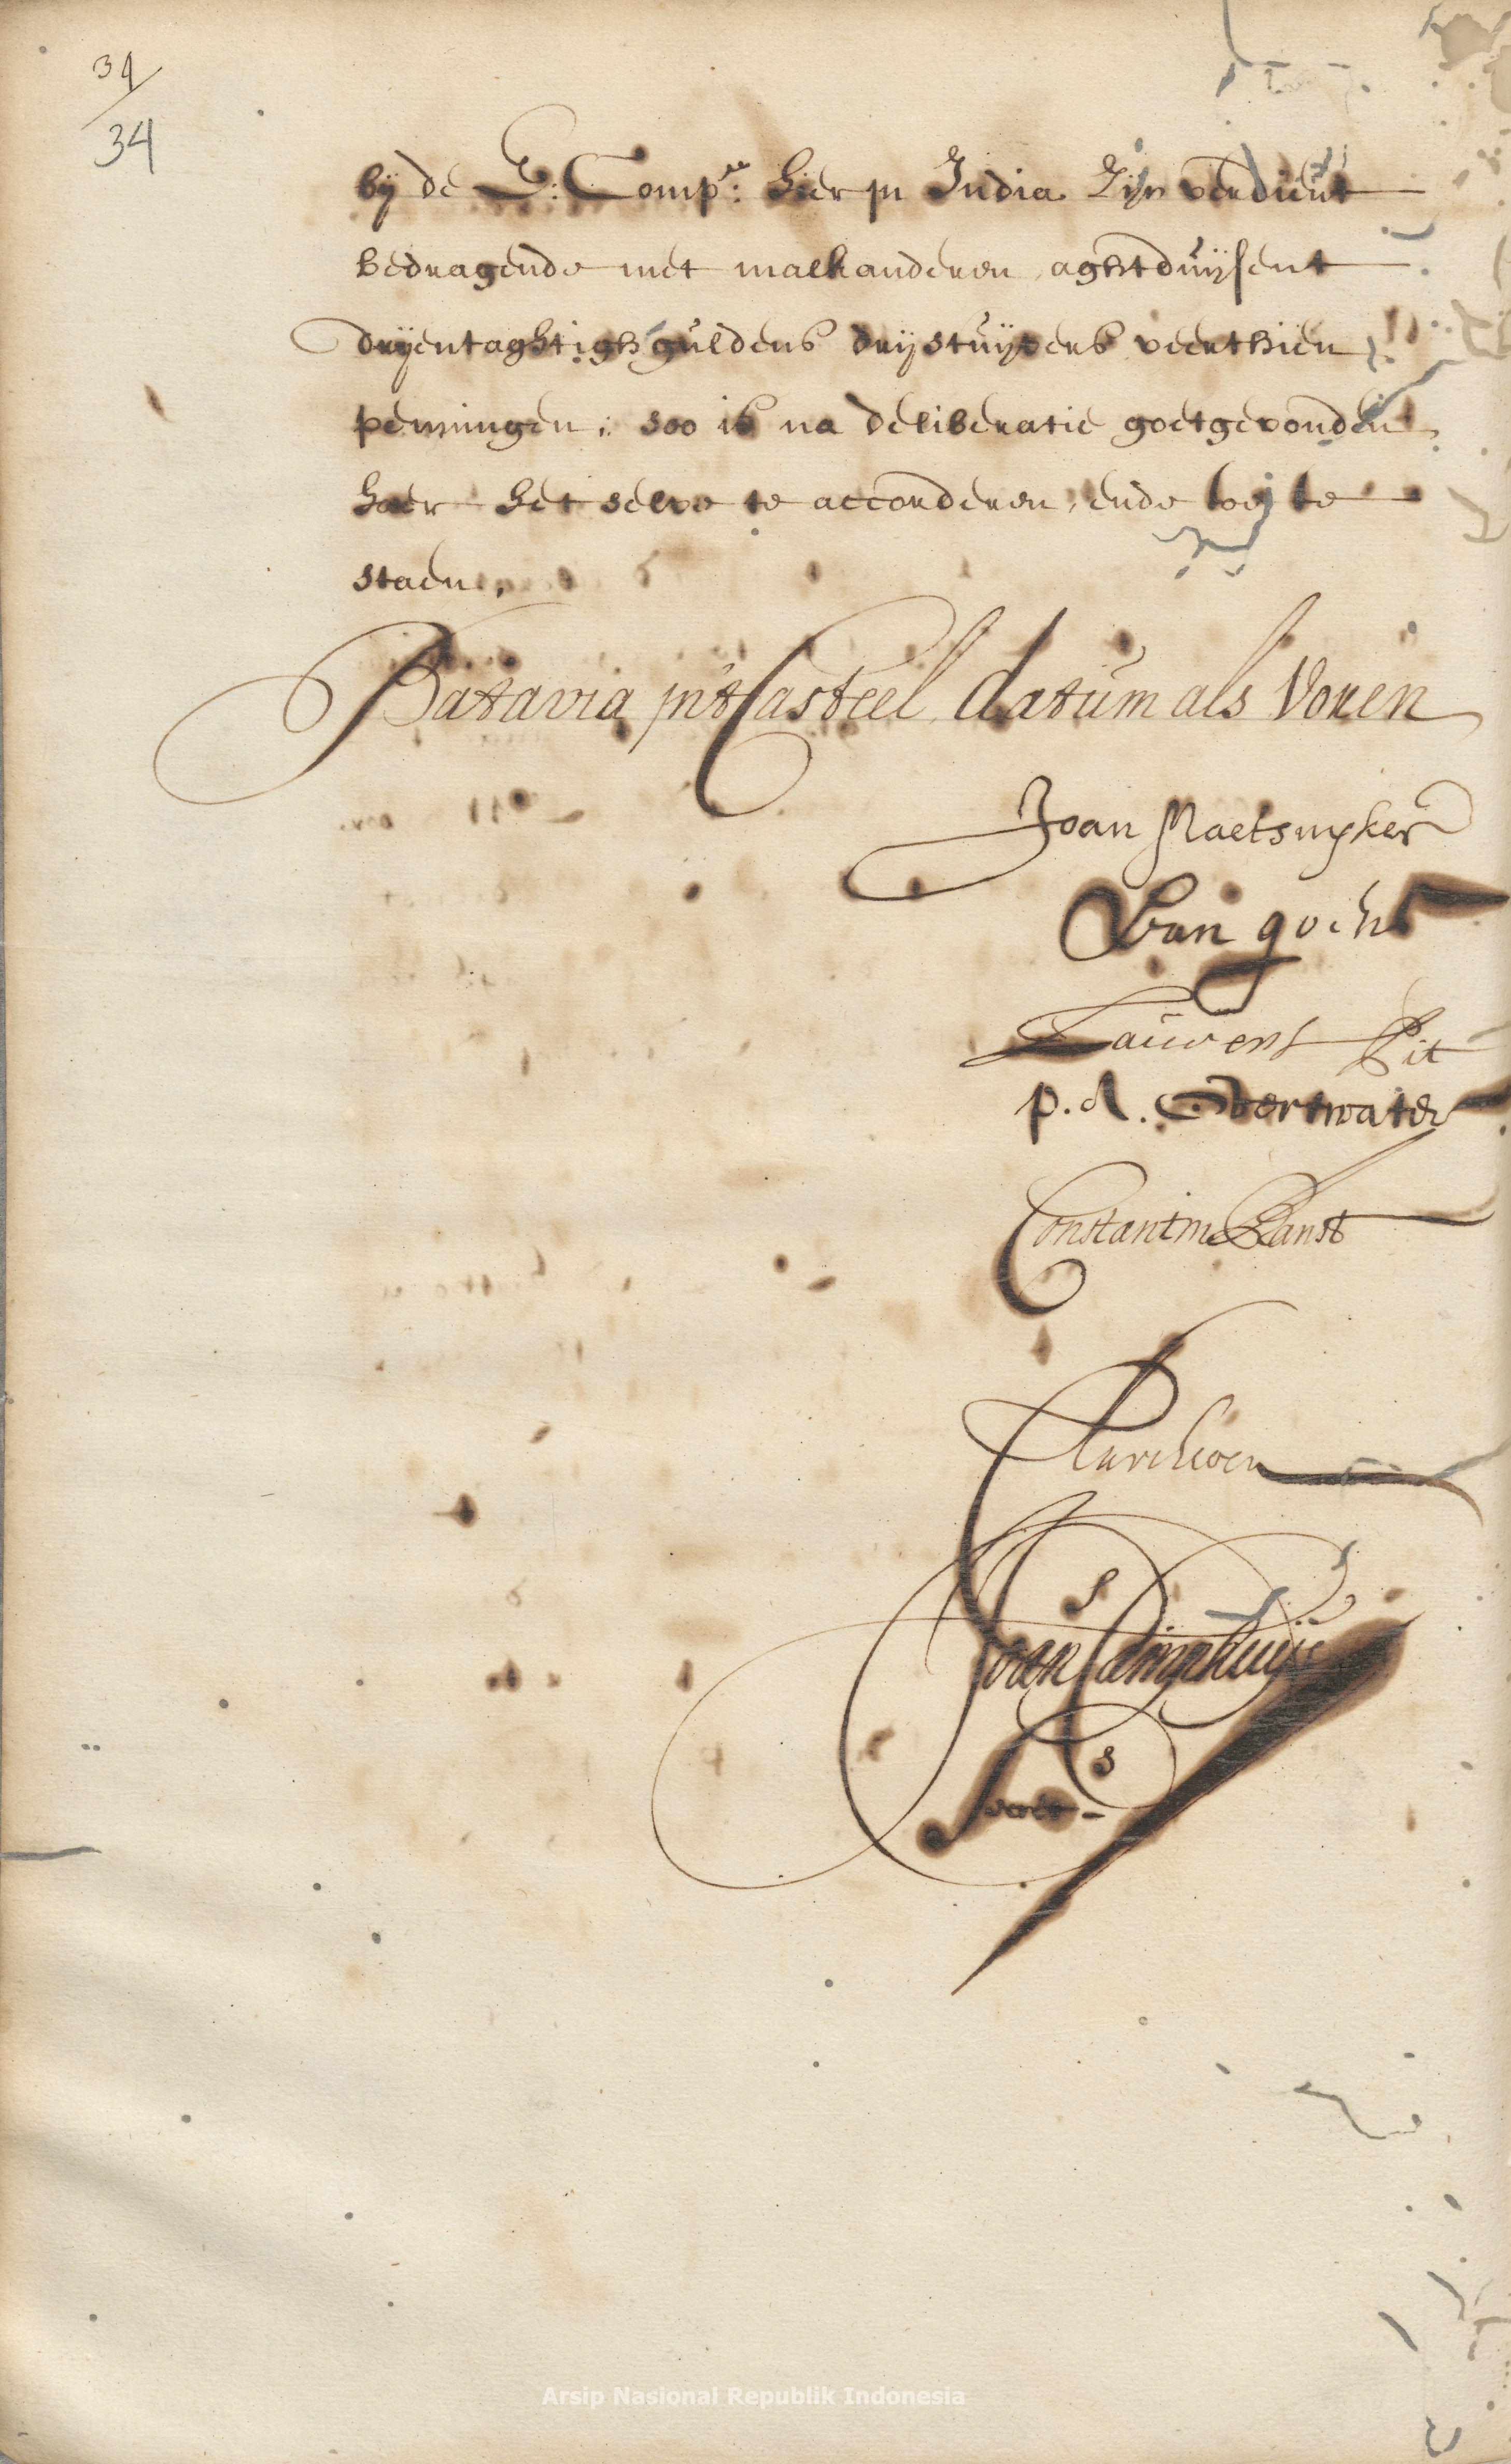 34
34
bij de E: Comp:ie hier in India zijn verdient
bedragende met malkanderen aghtduijsent
drijentaghtigh guldens drij stuijvers veerthien
penningen; soo is na deliberatie goetgevonden
haer het selve te accorderen, ende toe te
staen,
Batavia in't Casteel datum als Voren
Joan Maetsuyker
V an goens
Laurens Pit
p. A. Overtwater
Constantin Ranst
Joan Camphuijs
Secrets
Arsip Nasional Republik Indonesia